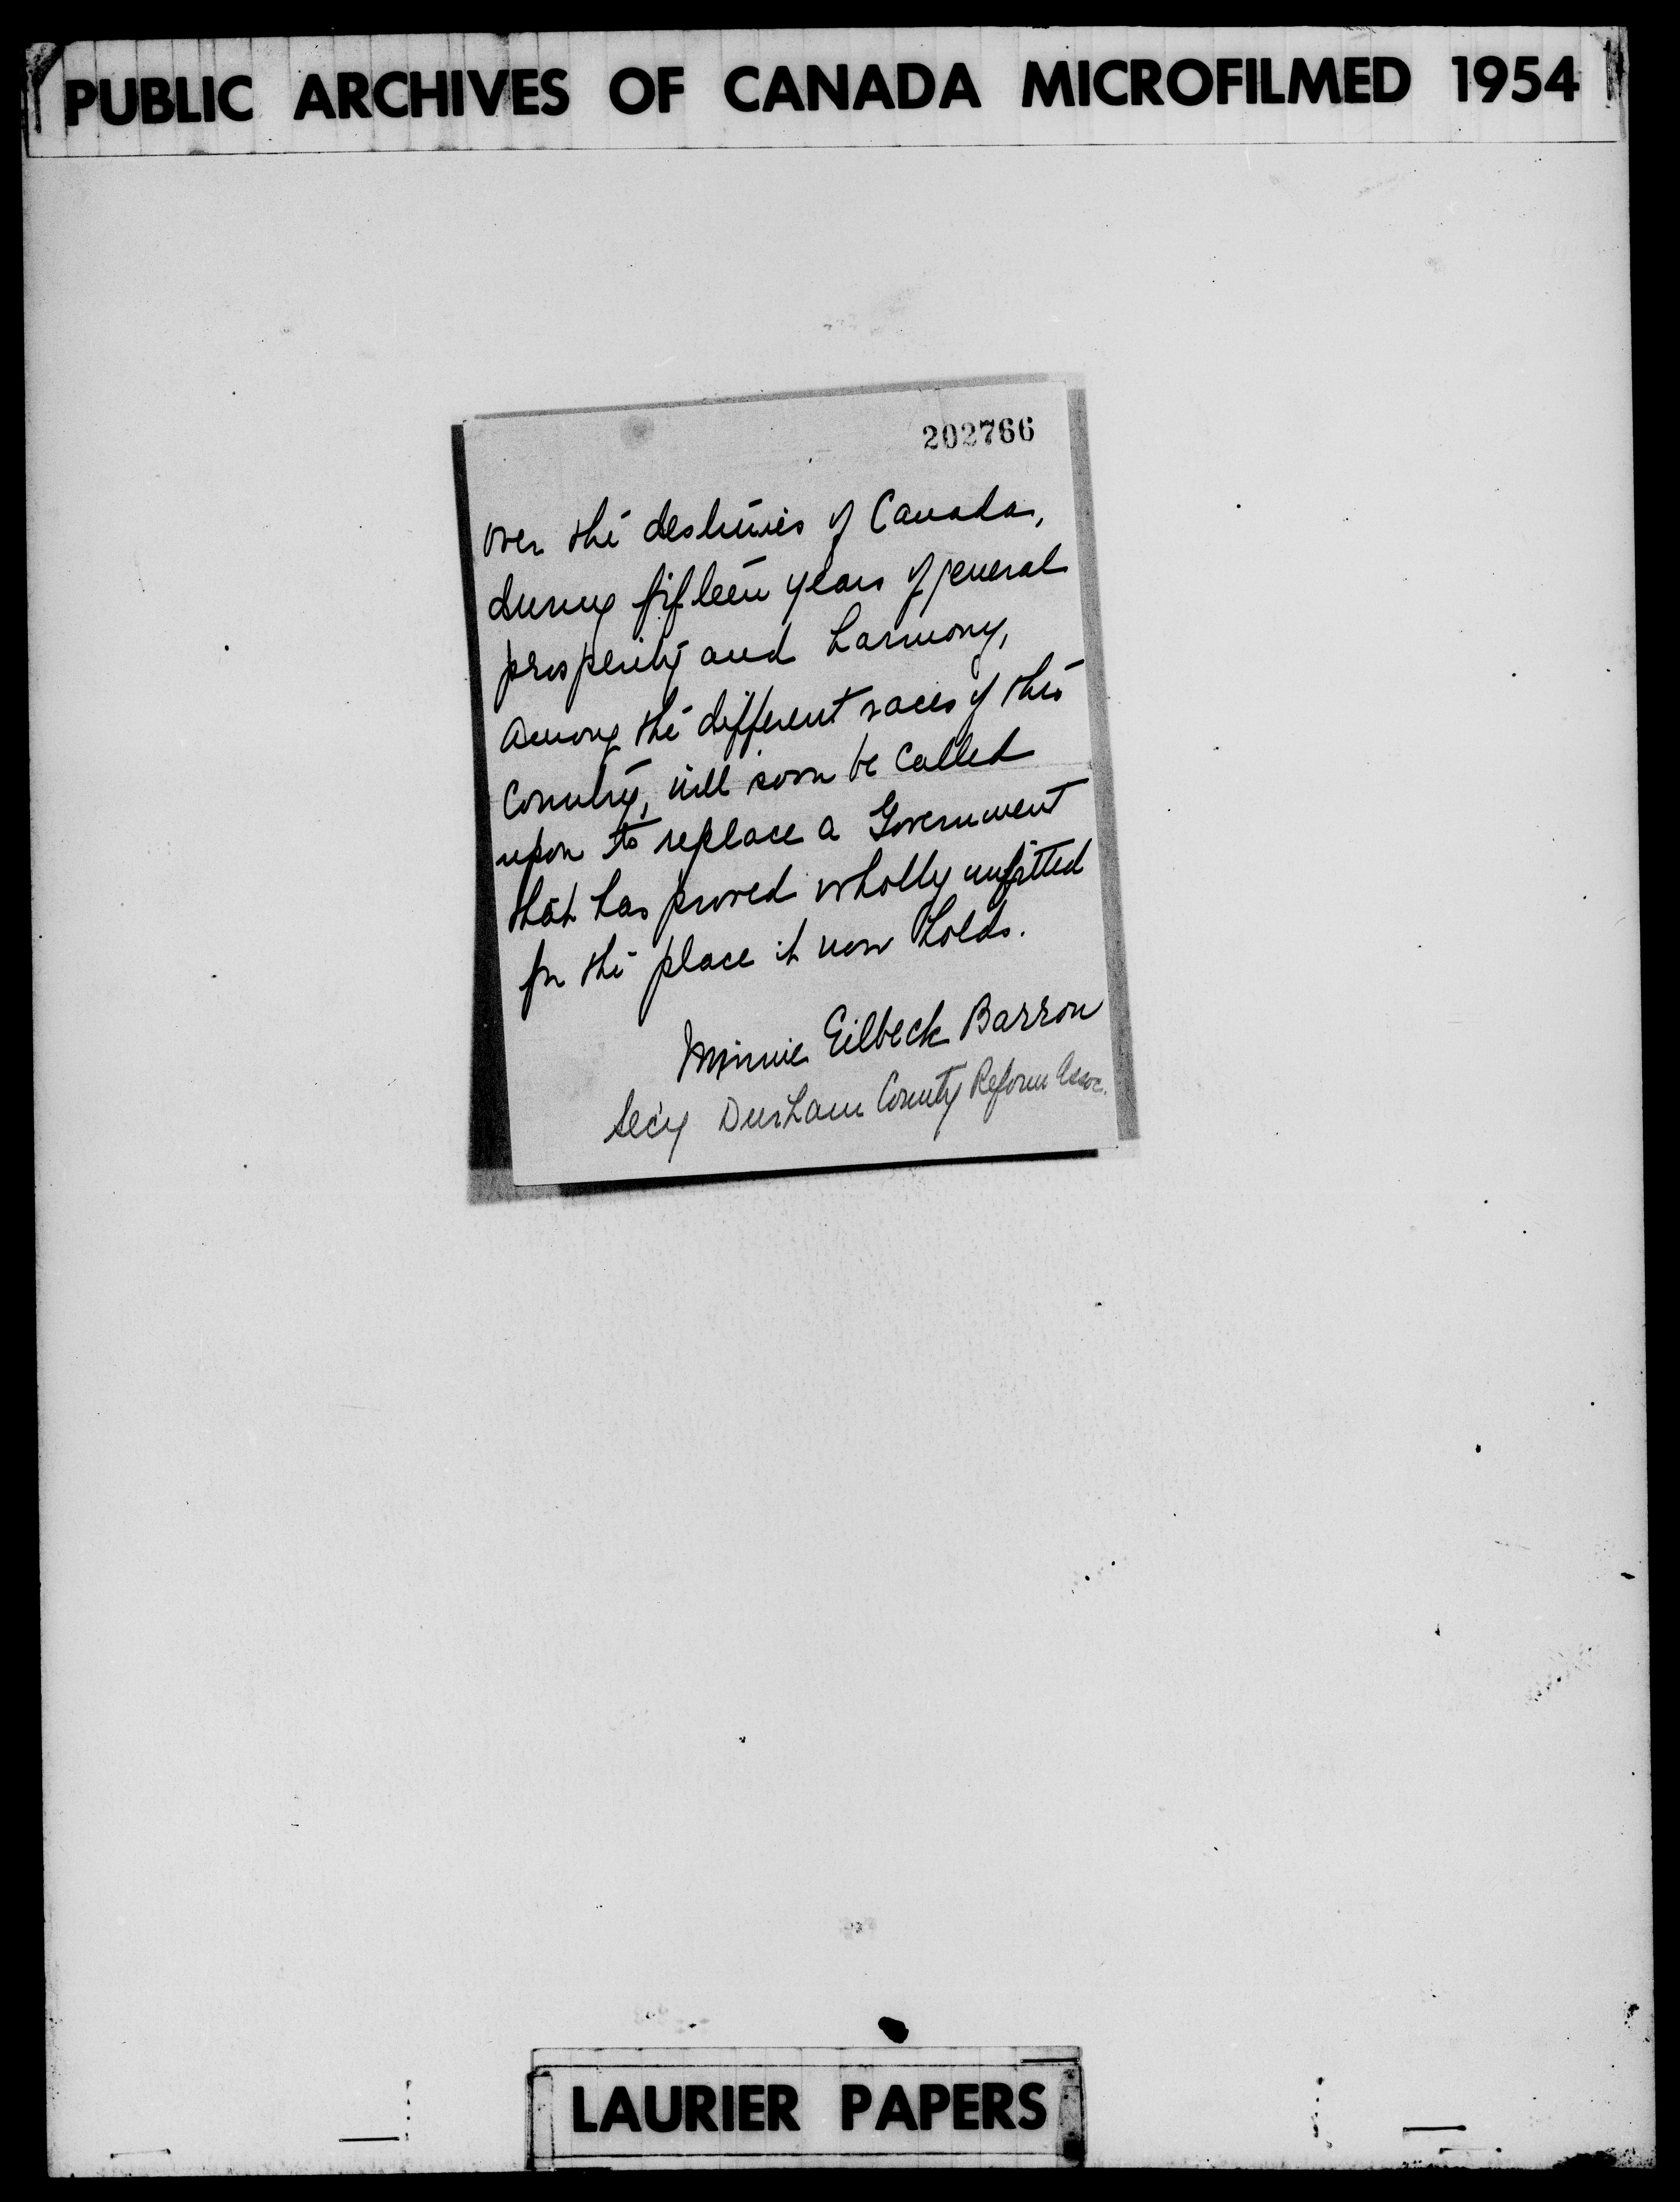 PUBLIC ARCHIVES OF CANADA MICROFILMED 1954
202766
over the destinies of Canada,
during fifteen years of general
prosperity and harmony,
among the different races of this
Country, will soon be called
upon to replace a Government
that has proved wholly unfitted
for the place it now holds.
Minnie Eilbeck Barron
Sec'y Durham County Reform Assoc.
LAURIER PAPERS